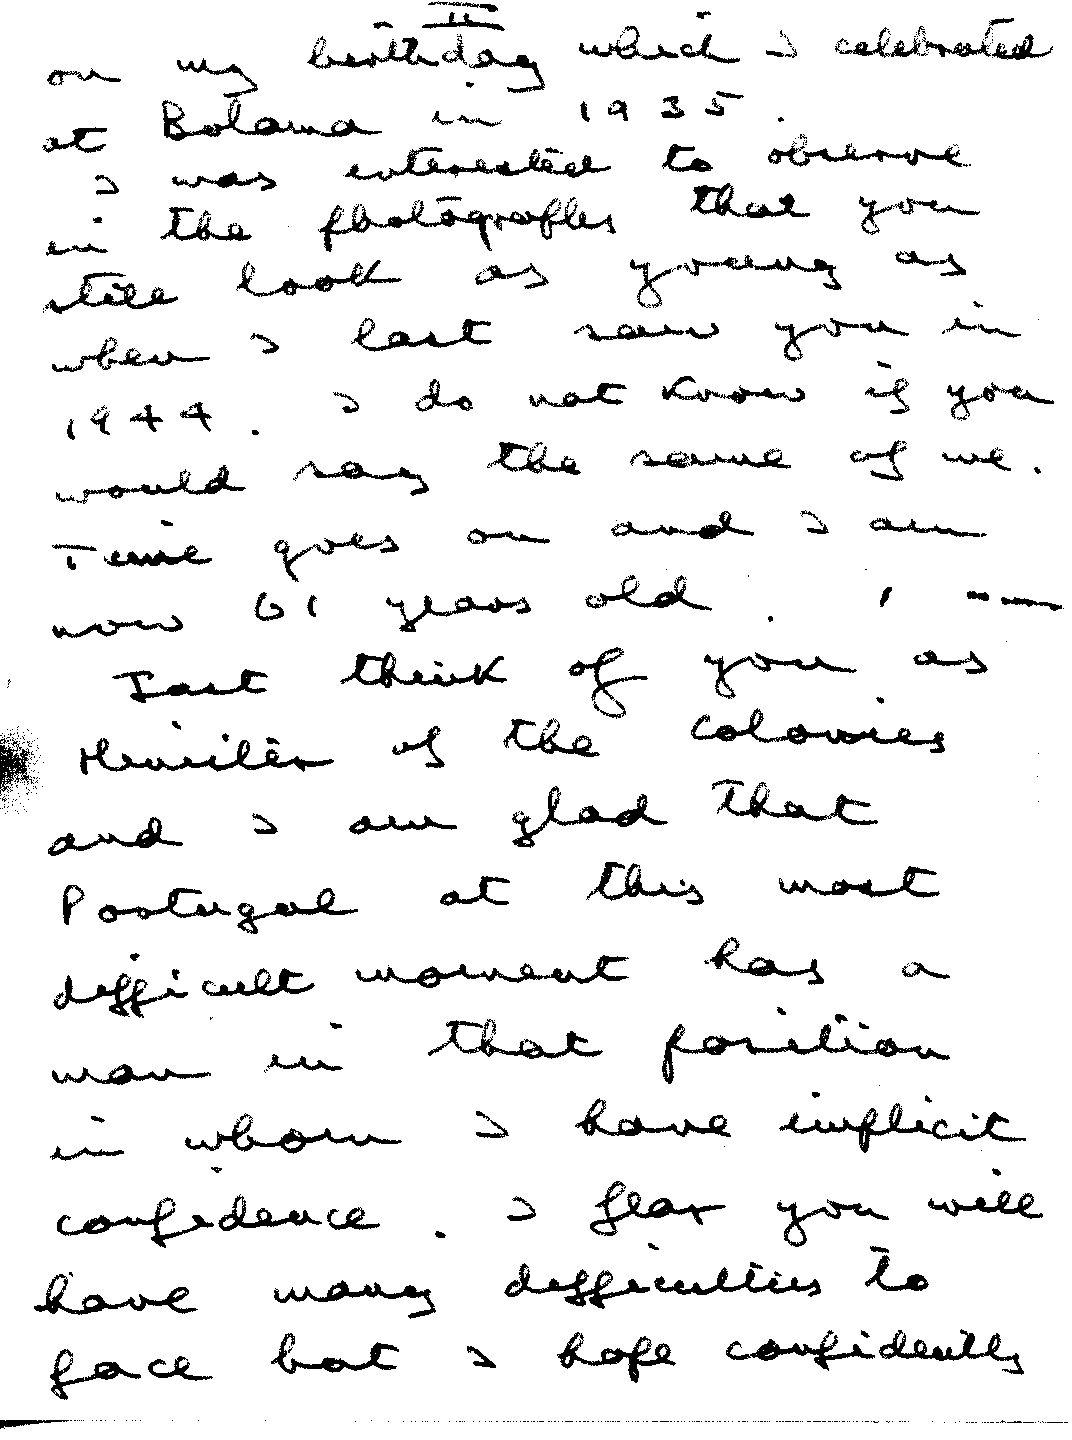 II
on my birthday which I celebrated
at Bolama in 1935.
I was interested to observe
in the photografles that you
still look as young as
when I last saw you in
1944. I do not know if you
would say the same of me.
Time goes on and I am
now 61 years old.
I art think of you as
Minister of the colonies
and I am glad that
Portugal at this most
difficult moment has a
man in that position
in whom I have implicit
confidence. I fear you will
have many difficulties to
face but I hope confidently